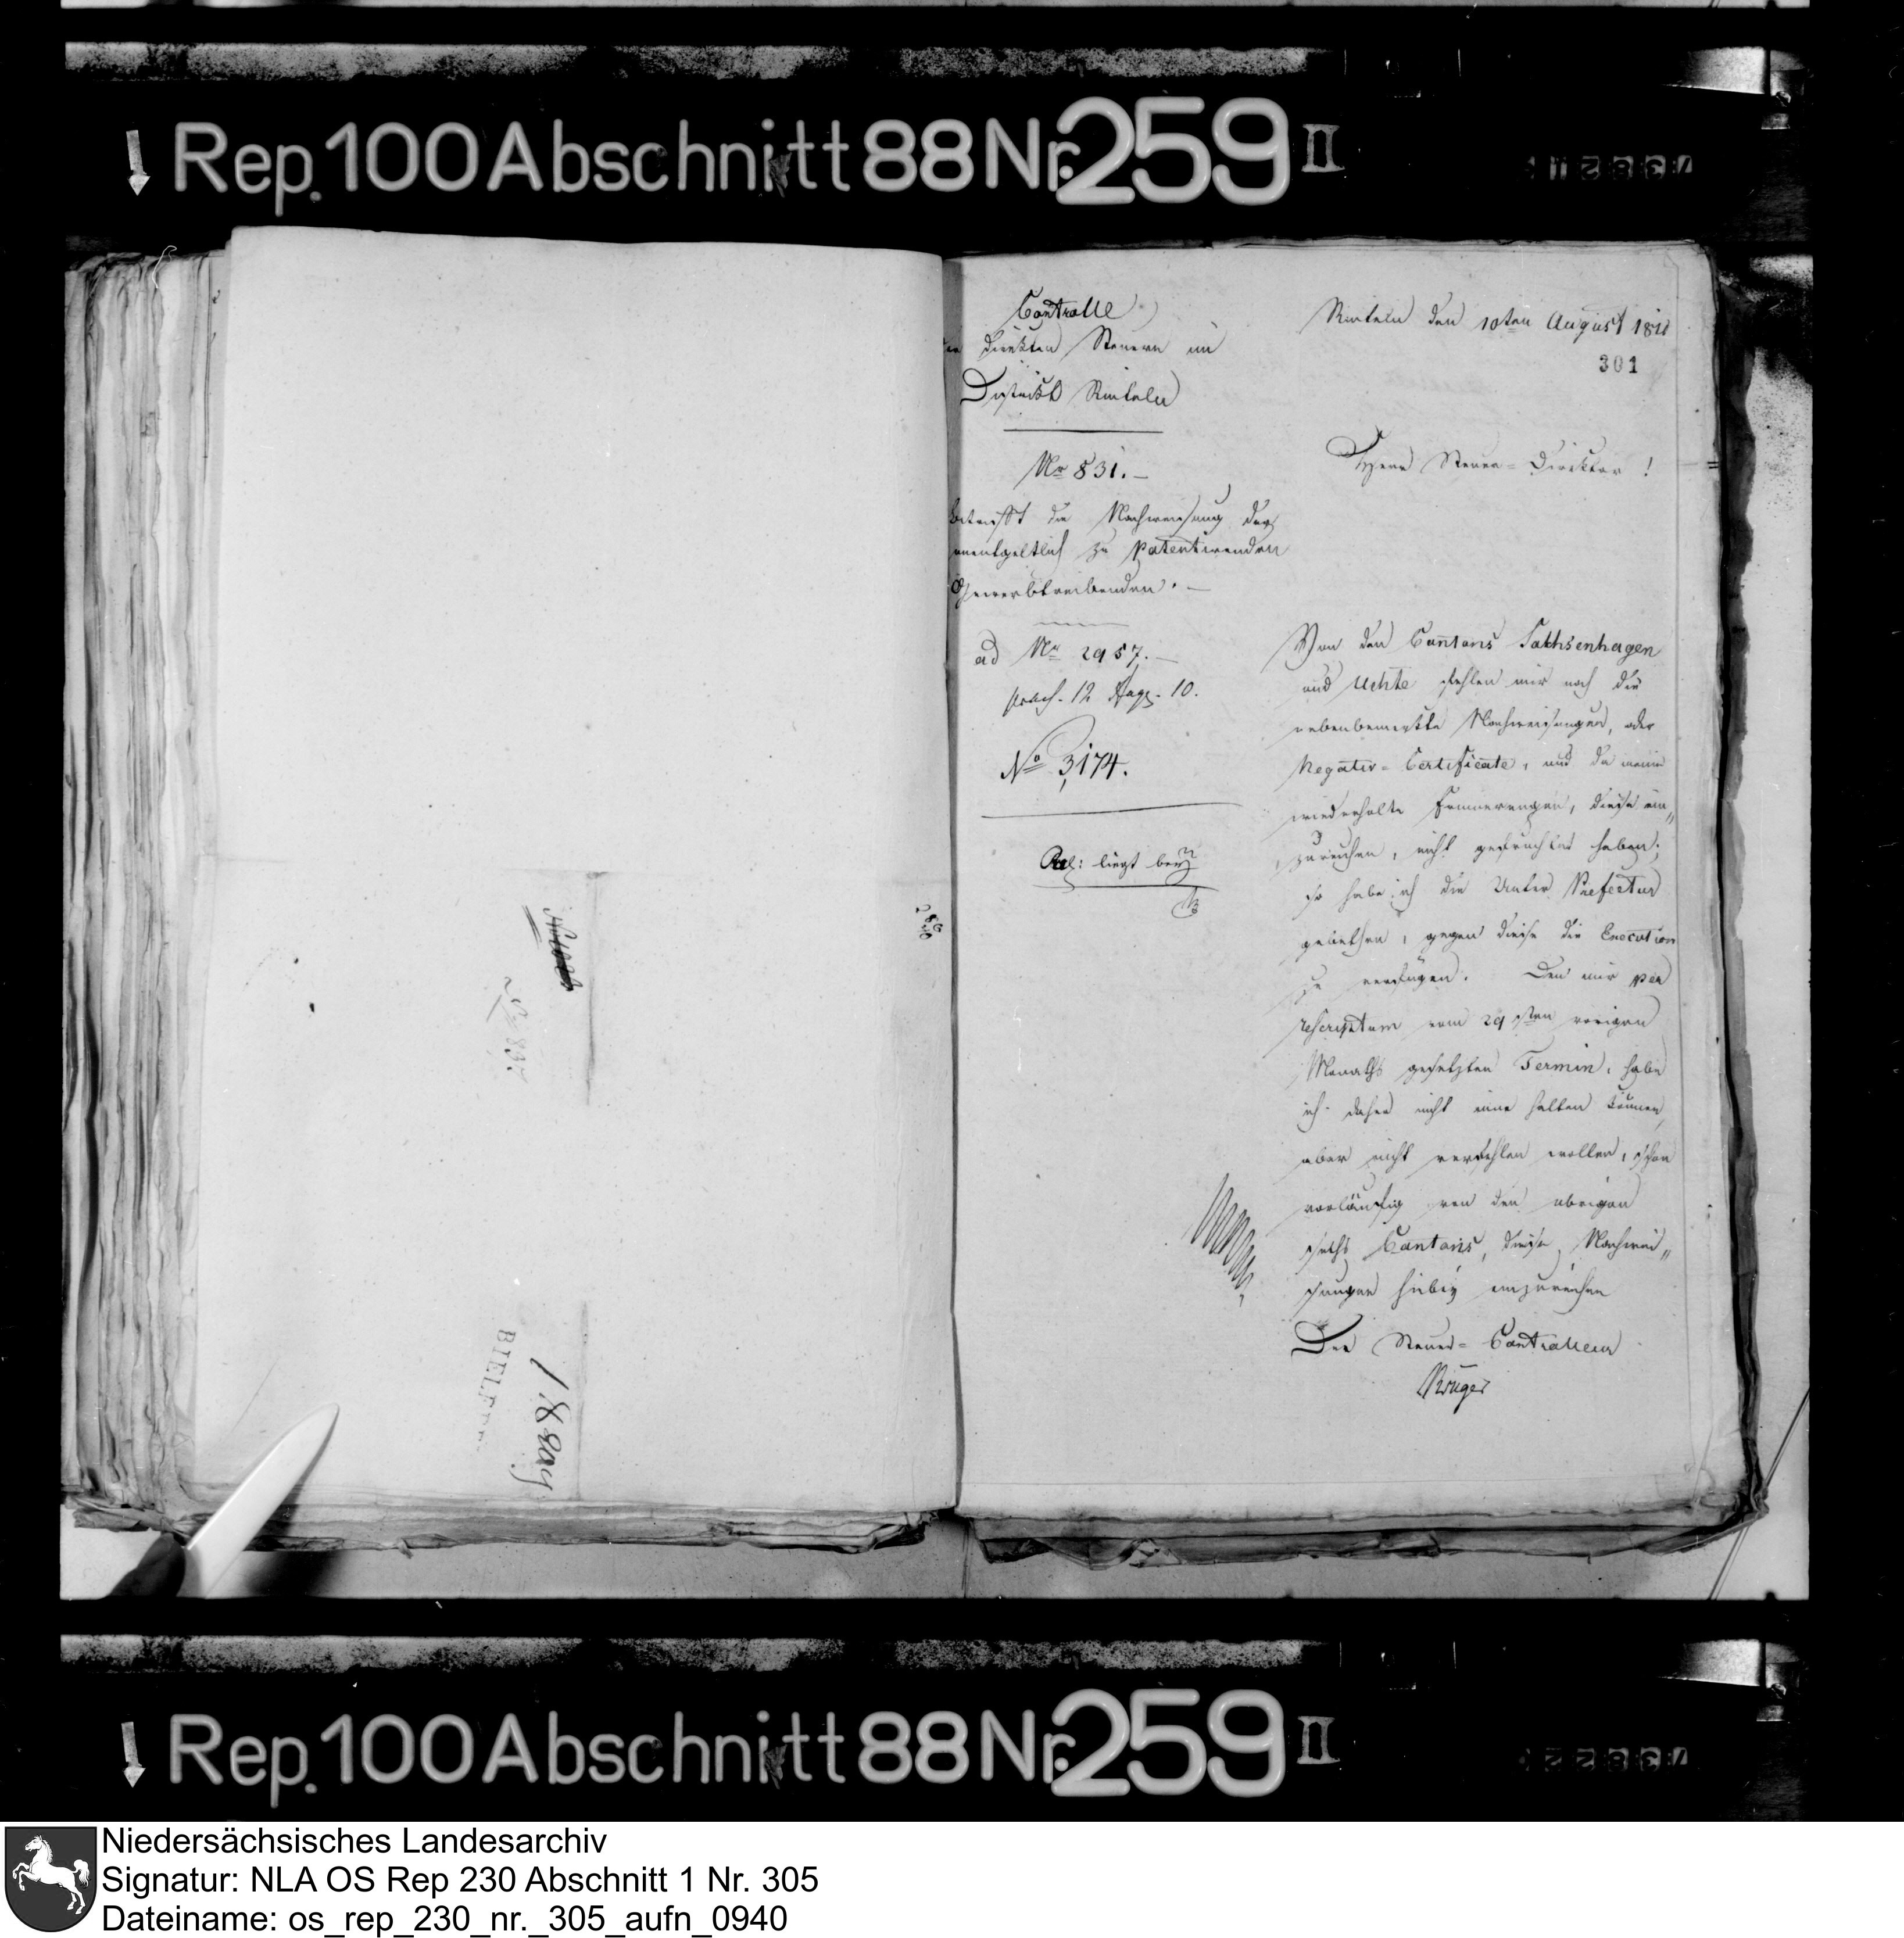 Rep. 100 Abschnitt 88 Nr. 259 II
Controlle
der direkten Steuern im
District Rinteln
Nr 831.
betrifft die Nachweisung der
unentgeltlich zu patentirenden
Gewerbtreibenden.
ad Nr 2957.
praes. 12 Aug. 10.
No 3174.
liegt bey
Rinteln den 10ten August 1810
301
Herr Steuer-Direktor!
Von den Cantons Sachsenhagen
und Uchte fehlen mir noch die
nebenbemerkte Nachweisungen, oder
Negativ-Certificate, und da meine
wiederholte Erinnerungen, diese ein„
zureichen, nicht gefruchtet haben;
so habe ich die Unter Präfectur
gebethen, gegen diese die Execution
zu verfügen. Den mir per
rescriptum vom 29sten vorigen
Monaths gesetzten Termin, habe
ich daher nicht inne halten können,
aber nicht verfehlen wollen, schon
vorläufig von den übrigen
sechs Cantons, diese Nachwei„
sungen hiebey einzureichen
Der Steuer-Controlleur
Krüger
BIELEF
Rep. 100 Abschnitt 88 Nr. 259 II
Niedersächsisches Landesarchiv
Signatur: NLA OS Rep 230 Abschnitt 1 Nr. 305
Dateiname: os_rep_230_nr._305_aufn_0940